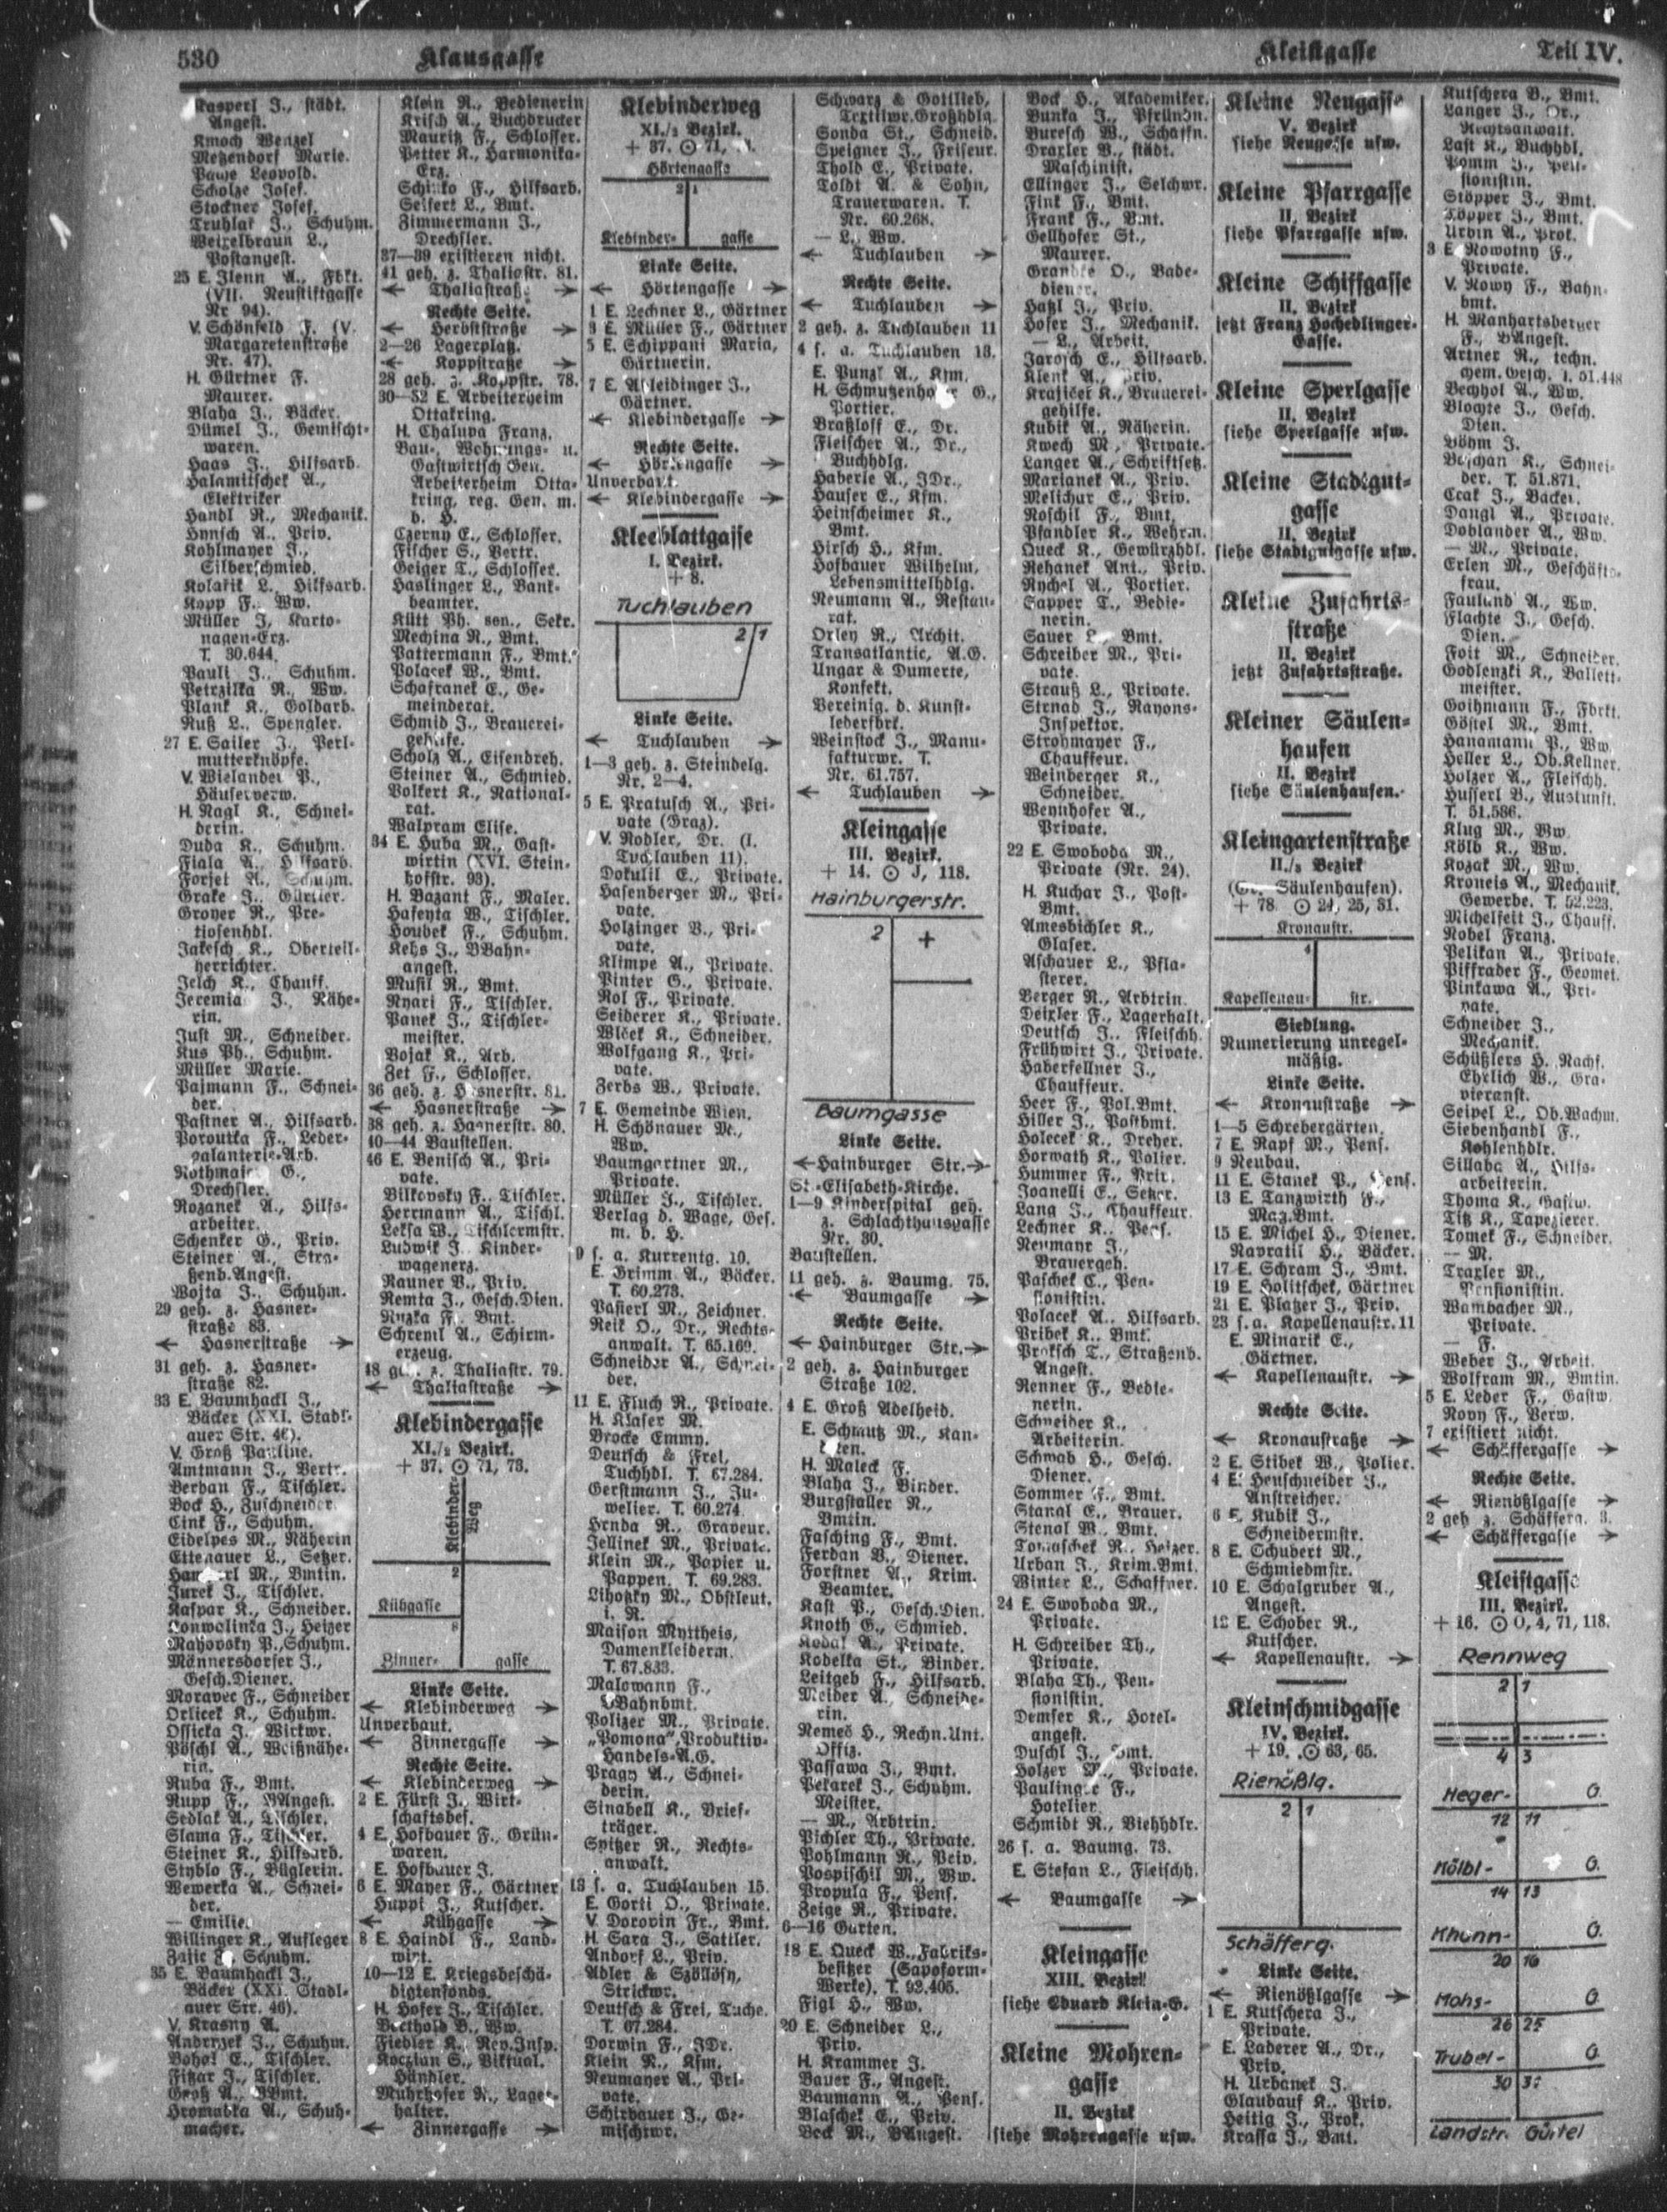 530
Klausgasse
Kleistgasse
Teil IV.
Kasperl J., städt.
Angest.
Kmoch Wenzel
Metzendorf Marie.
Leopold.
Scholze Josef.
Stockner Josef.
Truhlar J., Schuhm.
Weixelbraun L.,
Postangest.
25 E. Jlenn A., Fbkt.
(VII. Neustiftgasse
Nr. 94).
V. Schönfeld F. (V.
Margaretenstraße
Nr. 47).
H. Gürtner F.
Maurer.
Blaha J., Bäcker.
Dümel J., Gemischt-
waren.
Haas J., Hilfsarb.
Halamitschek A.,
Elektriker
Handl R., Mechanik.
Hynsch A., Priv.
Kohlmayer J.,
Silberschmied.
Kolarik L., Hilfsarb.
Kopp F., Ww.
Müller J., Karto-
nagen-Erz.
T. 30.644.
Pauli J., Schuhm.
Petrzilka R., Ww.
Plank K., Goldarb.
Ruß L., Spengler.
27 E. Sailer J., Perl-
mutterknöpfe.
V. Wielander P.,
Häuserverw.
H. Nagl K., Schnei-
derin.
Duda K., Schuhm.
Fiala A., Hilfsarb.
Forjet A., Schuhm.
Grake J., Gürtler.
Groyer R., Pre-
tiosenhdl.
Jakesch K., Oberteil-
herrichter.
Jelch K., Chauff.
Jeremia J., Nähe-
rin.
Just M., Schneider.
Kus Ph., Schuhm.
Müller Marie.
Pajmann F., Schnei-
der.
Pastner A., Hilfsarb.
Poroutka F., Leder-
galanterie-Arb.
G.,
Drechsler.
Rozanek A., Hilfs-
arbeiter.
Schenker G., Priv.
Steiner A., Stra-
ßenb.Angest.
Wojta J., Schuhm.
29 geh. z. Hasner-
straße 83.
← Hasnerstraße →
31 geh. z. Hasner-
straße 82.
33 E. Baumhackl J.,
Bäcker (XXI. Stadl-
auer Str. 46).
V. Groß Pauline.
Amtmann J., Vertr.
Berban F., Tischler.
Bock H., Zuschneider.
Cink F., Schuhm.
Eidelpes M., Näherin
Ettenauer L., Setzer.
M., Bmtin.
Jurek J., Tischler.
Kaspar K., Schneider.
Konwalinka J., Heizer
Mahovsky P., Schuhm.
Männersdorfer J.,
Gesch.Diener.
Moravec F., Schneider
Orlicek K., Schuhm.
Ossicka J., Wirkwr.
Pöschl A., Weißnähe-
rin.
Ruba F., Bmt.
Rupp F., BAngest.
Sedlak A., Tischler.
Slama F., Tischler.
Steiner K., Hilfsarb.
Styblo F., Büglerin.
Wewerka A., Schnei-
der.
— Emilie.
Willinger K., Aufleger
Zajic Schuhm.
35 E. Baumhackl J.,
Bäcker (XXI. Stadl-
auer Str. 46).
V. Krasny A.
J., Schuhm.
E., Tischler.
Fitzar J., Tischler.
Groß A., BBmt.
Hromatka A., Schuh-
macher.
Klein R., Bedienerin
Krisch A., Buchdrucker
Mauritz F., Schlosser.
Petter K., Harmonika-
Erz.
F., Hilfsarb.
Seifert L., Bmt.
Zimmermann J.,
Drechsler.
37—39 existieren nicht.
41 geh. z. Thaliastr. 81.
← Thaliastraße →
Rechte Seite.
← Herbststraße →
2—26 Lagerplatz.
← Koppstraße →
28 geh. z. Koppstr. 78.
30—32 E. Arbeiterheim
Ottakring.
H. Chalupa Franz.
Bau-, Wohnungs- u.
Gastwirtsch Gen.
Arbeiterheim Otta-
kring, reg. Gen. m.
b. H.
Czerny E., Schlosser.
Fischer S., Vertr.
Geiger T., Schlosser.
Haslinger L., Bank-
beamter.
Kütt Ph. sen., Sekr.
Mechina R., Bmt.
Pattermann F., Bmt.
Polacek W., Bmt.
Schafranek E., Ge-
meinderat.
Schmid J., Brauerei-
gehilfe.
Scholz A., Eisendreh.
Steiner A., Schmied.
Volkert K., National-
rat.
Walpram Elise.
34 E. Huba M., Gast-
wirtin (XVI. Stein-
hofstr. 93).
H. Bazant F., Maler.
Hafenta W., Tischler.
Houbek F., Schuhm.
Kehs J., BBahn-
angest.
Musil R., Bmt.
Nyari F., Tischler.
Panek J., Tischler-
meister.
Vojak K., Arb.
Zet F., Schlosser.
36 geh. z. Hasnerstr. 81.
← Hasnerstraße →
38 geh. z. Hasnerstr. 80.
40—44 Baustellen.
46 E. Benisch A., Pri-
vate.
Bilkovsky F., Tischler.
Herrmann A., Tischl.
Leksa W., Tischlermstr.
Ludwik J., Kinder-
wagenerz.
Rauner V., Priv.
Remta J., Gesch.Dien.
Ruzka F., Bmt.
Schreml A., Schirm-
erzeug.
48 geh. z. Thaliastr. 79.
← Thaliastraße →
Klebindergasse
XI./2 Bezirk.
+ 37. ⊙ 71, 73.
Klebinder-
Weg
2
Kühgasse
8
Zinner- gasse
Linke Seite.
← Klebinderweg →
Unverbaut.
← Zinnergasse →
Rechte Seite.
← Klebinderweg →
2 E. Fürst J., Wirt-
schaftsbes.
4 E. Hofbauer F., Grün-
waren.
E. Hofbauer J.
6 E. Mayer F., Gärtner
Huppi J., Kutscher.
← Kühgasse →
8 E. Haindl F., Land-
wirt.
10—12 E. Kriegsbeschä-
digtenfonds.
H. Hofer J., Tischler.
Berthold B., Ww.
Fiedler K., Rev.Insp.
Koczian S., Viktual.
Händler.
Muhrhofer R., Lager-
halter.
← Zinnergasse →
Klebinderweg
XI./2 Bezirk.
+ 37. ⊙ 71,
Hörtengasse
2 1
Klebinder- gasse
Linke Seite.
← Hörtengasse →
1 E. Lechner L., Gärtner
3 E. Müller F., Gärtner
5 E. Schippani Maria,
Gärtnerin.
7 E. Aßleidinger J.,
Gärtner.
← Klebindergasse →
Rechte Seite.
← Hörtengasse →
Unverbaut.
← Klebindergasse →
Kleeblattgasse
I. Bezirk.
+ 8.
Tuchlauben
2 1
Linke Seite.
← Tuchlauben →
1—3 geh. z. Steindelg.
Nr. 2—4.
5 E. Pratusch A., Pri-
vate (Graz).
V. Nobler, Dr. (I.
Tuchlauben 11).
Dokulil E., Private.
Hasenberger M., Pri-
vate.
Holzinger B., Pri-
vate.
Klimpe A., Private.
Pinter G., Private.
Rol F., Private.
Seiderer K., Private.
Wlček K., Schneider.
Wolfgang K., Pri-
vate.
Zerbs W., Private.
7 E. Gemeinde Wien.
H. Schönauer M.,
Ww.
Baumgartner M.,
Private.
Müller J., Tischler.
Verlag d. Wage, Ges.
m. b. H.
9 s. a. Kurrentg. 10.
E. Grimm A., Bäcker.
T. 60.273.
Pasierl M., Zeichner.
Reik O., Dr., Rechts-
anwalt. T. 65.169.
Schneider A., Schnei-
der.
11 E. Fluch R., Private.
H. Klaser M.
Brocke Emmy.
Deutsch & Frei,
Tuchhdl. T. 67.284.
Gerstmann J., Ju-
welier. T. 60.274.
Hrnda R., Graveur.
Jellinek M., Private.
Klein M., Papier u.
Pappen. T. 69.283.
Lihotzky M., Obstleut.
i. R.
Maison Myrtheis,
Damenkleiderm.
T. 67.833.
Malowany F.,
BBahnbmt.
Polizer M., Private.
„Pomona“, Produktiv-
Handels-A.G.
Pragy A., Schnei-
derin.
Sinabell K., Brief-
träger.
Spitzer R., Rechts-
anwalt.
13 s. a. Tuchlauben 15.
E. Gorti O., Private.
V. Dorovin Fr., Bmt.
H. Sara J., Sattler.
Andorf L., Priv.
Adler & Szöllösy,
Strickwr.
Deutsch & Frei, Tuche.
T. 67.284.
Dorwin F., JDr.
Klein R., Kfm.
Neumayer A., Pri-
vate.
Schirbauer J., Ge-
mischtwr.
Schwarz & Gottlieb,
Textilwr.Großhdlg.
Sonda St., Schneid.
Speigner J., Friseur.
Thold E., Private.
Toldt A. & Sohn,
Trauerwaren. T.
Nr. 60.268.
— L., Ww.
← Tuchlauben →
Rechte Seite.
← Tuchlauben →
2 geh. z. Tuchlauben 11
4 s. a. Tuchlauben 13.
E. Punzl A., Kfm.
H. Schmutzenhofer G.,
Portier.
Braßloff E., Dr.
Fleischer A., Dr.,
Buchhdlg.
Haberle A., JDr.,
Hauser E., Kfm.
Heinscheimer K.,
Bmt.
Hirsch H., Kfm.
Hofbauer Wilhelm,
Lebensmittelhdlg.
Neumann A., Restau-
rat.
Orley R., Archit.
Transatlantic, A.G.
Ungar & Dumerte,
Konfekt.
Vereinig. d. Kunst-
lederfbrk.
Weinstock J., Manu-
fakturwr. T.
Nr. 61.757.
← Tuchlauben →
Kleingasse
III. Bezirk.
+ 14. ⊙ J, 118.
Hainburgerstr.
2 +
Baumgasse
Linke Seite.
← Hainburger Str. →
St.-Elisabeth-Kirche.
1—9 Kinderspital geh.
z. Schlachthausgasse
Nr. 30.
Baustellen.
11 geh. z. Baumg. 75.
← Baumgasse →
Rechte Seite.
← Hainburger Str. →
2 geh. z. Hainburger
Straße 102.
4 E. Groß Adelheid.
E. Schmutz M., Kan-
H. Maleck F.
Blaha J., Binder.
Burgstaller R.,
Bmtin.
Fasching F., Bmt.
Ferdan V., Diener.
Forstner A., Krim.
Beamter.
Kast P., Gesch.Dien.
Knoth G., Schmied.
Kodal A., Private.
Kodelka St., Binder.
Leitgeb F., Hilfsarb.
Meider A., Schneide-
rin.
Nemeč H., Rechn.Unt.
Offiz.
Passawa J., Bmt.
Pekarek J., Schuhm.
Meister.
— M., Arbtrin.
Pichler Th., Private.
Pohlmann R., Priv.
Pospischil M., Ww.
Propula F., Pens.
Zeige R., Private.
6—16 Gärten.
18 E. Queck W., Fabriks-
besitzer (Sapoform-
Werke). T. 92.405.
Figl H., Ww.
20 E. Schneider L.,
Priv.
H. Krammer J.
Bauer F., Angest.
Baumann A., Pens.
Blaschek E., Priv.
Beck M., BAngest.
Bock H., Akademiker.
Bunka J., Pfründn.
Buresch W., Schaffn.
Draxler B., städt.
Maschinist.
Ellinger J., Selchwr.
Fink F., Bmt.
Frank F., Bmt.
Gellhofer St.,
Maurer.
Grandke O., Bade-
diener.
Haßl J., Priv.
Hofer J., Mechanik.
— L., Arbeit.
Jarosch E., Hilfsarb.
Klenk A., Priv.
Krajicek K., Brauerei-
gehilfe.
Kubik A., Näherin.
Kwech M., Private.
Langer A., Schriftsetz.
Marianek A., Priv.
Melichar E., Priv.
Noschil F., Bmt.
Pfandler K., Wehrm.
Queck K., Gewürzhdl.
Rehanek Ant., Priv.
Rychel A., Portier.
Sapper T., Bedie-
nerin.
Sauer L., Bmt.
Schreiber M., Pri-
vate.
Strauß L., Private.
Strnad J., Rayons-
Inspektor.
Strohmayer F.,
Chauffeur.
Weinberger K.,
Schneider.
Weynhofer A.,
Private.
22 E. Swoboda M.,
Private (Nr. 24).
H. Kuchar J., Post-
Bmt.
Amesbichler K.,
Glaser.
Aschauer L., Pfla-
sterer.
Berger R., Arbtrin.
Deixler F., Lagerhalt.
Deutsch J., Fleischh.
Frühwirt J., Private.
Haberfellner J.,
Chauffeur.
Heer F., Pol.Bmt.
Hiller J., Postbmt.
Holecek K., Dreher.
Horwath K., Polier.
Hummer F., Priv.
Joanelli E., Setzer.
Lang J., Chauffeur.
Lechner K., Pens.
Neumayr J.,
Brauergeh.
Paschek E., Pen-
sionistin.
Polacek A., Hilfsarb.
Pribek K., Bmt.
Proksch T., Straßenb.
Angest.
Renner F., Bedie-
nerin.
Schneider K.,
Arbeiterin.
Schwab H., Gesch.
Diener.
Sommer F., Bmt.
Stanal E., Brauer.
Stenal M., Bmt.
Tomaschek R., Heizer.
Urban J., Krim.Bmt.
Winter L., Schaffner.
24 E. Swoboda M.,
Private.
H. Schreiber Th.,
Private.
Blaha Th., Pen-
sionistin.
Demser K., Hotel-
angest.
Duschl J., Bmt.
Holzer M., Private.
Paulinger F.,
Hotelier.
Schmidt R., Viehhdlr.
26 s. a. Baumg. 73.
E. Stefan L., Fleischh.
← Baumgasse →
Kleingasse
XIII. Bezirk
siehe Eduard Klein-G.
Kleine Mohren-
gasse
II. Bezirk
siehe Mohrengasse usw.
Kleine Neugasse
V. Bezirk
siehe Neugasse usw.
Kleine Pfarrgasse
II. Bezirk
siehe Pfarrgasse usw.
Kleine Schiffgasse
II. Bezirk
jetzt Franz Hochedlinger-
Gasse.
Kleine Sperlgasse
II. Bezirk
siehe Sperlgasse usw.
Kleine Stadtgut-
gasse
II. Bezirk
siehe Stadtgutgasse usw.
Kleine Zufahrts-
straße
II. Bezirk
jetzt Zufahrtsstraße.
Kleiner Säulen-
haufen
II. Bezirk
siehe Säulenhaufen.
Kleingartenstraße
II./2 Bezirk
(Gr. Säulenhaufen).
+ 78. ⊙ 24, 25, 31.
Kronaustr.
Kapellenau- str.
Siedlung.
Numerierung unregel-
mäßig.
Linke Seite.
← Kronaustraße →
1—5 Schrebergärten.
7 E. Rapf M., Pens.
9 Neubau.
11 E. Stanek P., Pens.
13 E. Tanzwirth F.,
Mag.Bmt.
15 E. Michel H., Diener.
Navratil H., Bäcker.
17 E. Schram J., Bmt.
19 E. Holitschek, Gärtner
21 E. Platzer J., Priv.
23 s. a. Kapellenaustr. 11
E. Minarik E.,
Gärtner.
← Kapellenaustr. →
Rechte Seite.
← Kronaustraße →
2 E. Stibek W., Polier.
4 E. Heuschneider J.,
Anstreicher.
6 E. Kubik J.,
Schneidermstr.
8 E. Schubert M.,
Schmiedmstr.
10 E. Schalgruber A.,
Angest.
12 E. Schober R.,
Kutscher.
← Kapellenaustr. →
Kleinschmidgasse
IV. Bezirk.
+ 19. ⊙ 63, 65.
Rienößlg.
2 1
Schäfferg.
Linke Seite.
← Rienößlgasse →
1 E. Kutschera J.,
Private.
E. Laderer A., Dr.,
Priv.
H. Urbanek J.
Glaubauf K., Priv.
Heitig J., Prok.
Krassa J., Bmt.
Kutschera B., Bmt.
Langer J., Dr.,
Rechtsanwalt.
Last K., Buchhdl.
Pomm J., Pen-
sionistin.
Stöpper J., Bmt.
Töpper J., Bmt.
Urbin A., Prok.
3 E. Nowotny F.,
Private.
V. Nowy F., Bahn-
bmt.
H. Manhartsberger
F., BAngest.
Artner R., techn.
chem. Gesch. T. 51.448
Bechhol A., Ww.
Blochte J., Gesch.
Dien.
Böhm J.
K., Schnei-
der. T. 51.871.
Crak J., Bäcker.
Dangl A., Private.
Doblander A., Ww.
— M., Private.
Erlen M., Geschäfts-
frau.
Fauland A., Ww.
Flachte J., Gesch.
Dien.
Foit M., Schneider.
Godlenzki K., Ballett-
meister.
Goihmann F., Fbrkt.
Göstel M., Bmt.
Hanamann P., Ww.
Heller L., Ob.Kellner.
Holzer A., Fleischh.
Husserl B., Auskunft.
T. 51.586.
Klug M., Ww.
Kölb K., Ww.
Kozak M., Ww.
Kroneis A., Mechanik.
Gewerbe. T. 52.223.
Michelfeit J., Chauff.
Nobel Franz.
Pelikan A., Private.
Piffrader F., Geomet.
Pinkawa A., Pri-
vate.
Schneider J.,
Mechanik.
Schüßlers H. Nachf.
Ehrlich W., Gra-
vieranst.
Seipel L., Ob.Wachm.
Siebenhandl F.,
Kohlenhdlr.
Sillaba A., Hilfs-
arbeiterin.
Thoma K., Gastw.
Titz K., Tapezierer.
Tomek F., Schneider.
— M.
Traxler M.,
Pensionistin.
Wambacher M.,
Private.
— F.
Weber J., Arbeit.
Wolfram M., Bmtin.
5 E. Leder F., Gastw.
Novy F., Verw.
7 existiert nicht.
← Schäffergasse →
Rechte Seite.
← Rienößlgasse →
2 geh. z. Schäfferg. 3.
← Schäffergasse →
Kleistgasse
III. Bezirk.
+ 16. ⊙ O, 4, 71, 118.
Rennweg
2 1
4 3
Heger- G.
12 11
Kölbl- G.
14 13
Khunn- G.
20 16
Mohs- G.
26 25
Trubel- G.
30
Landstr. Gürtel